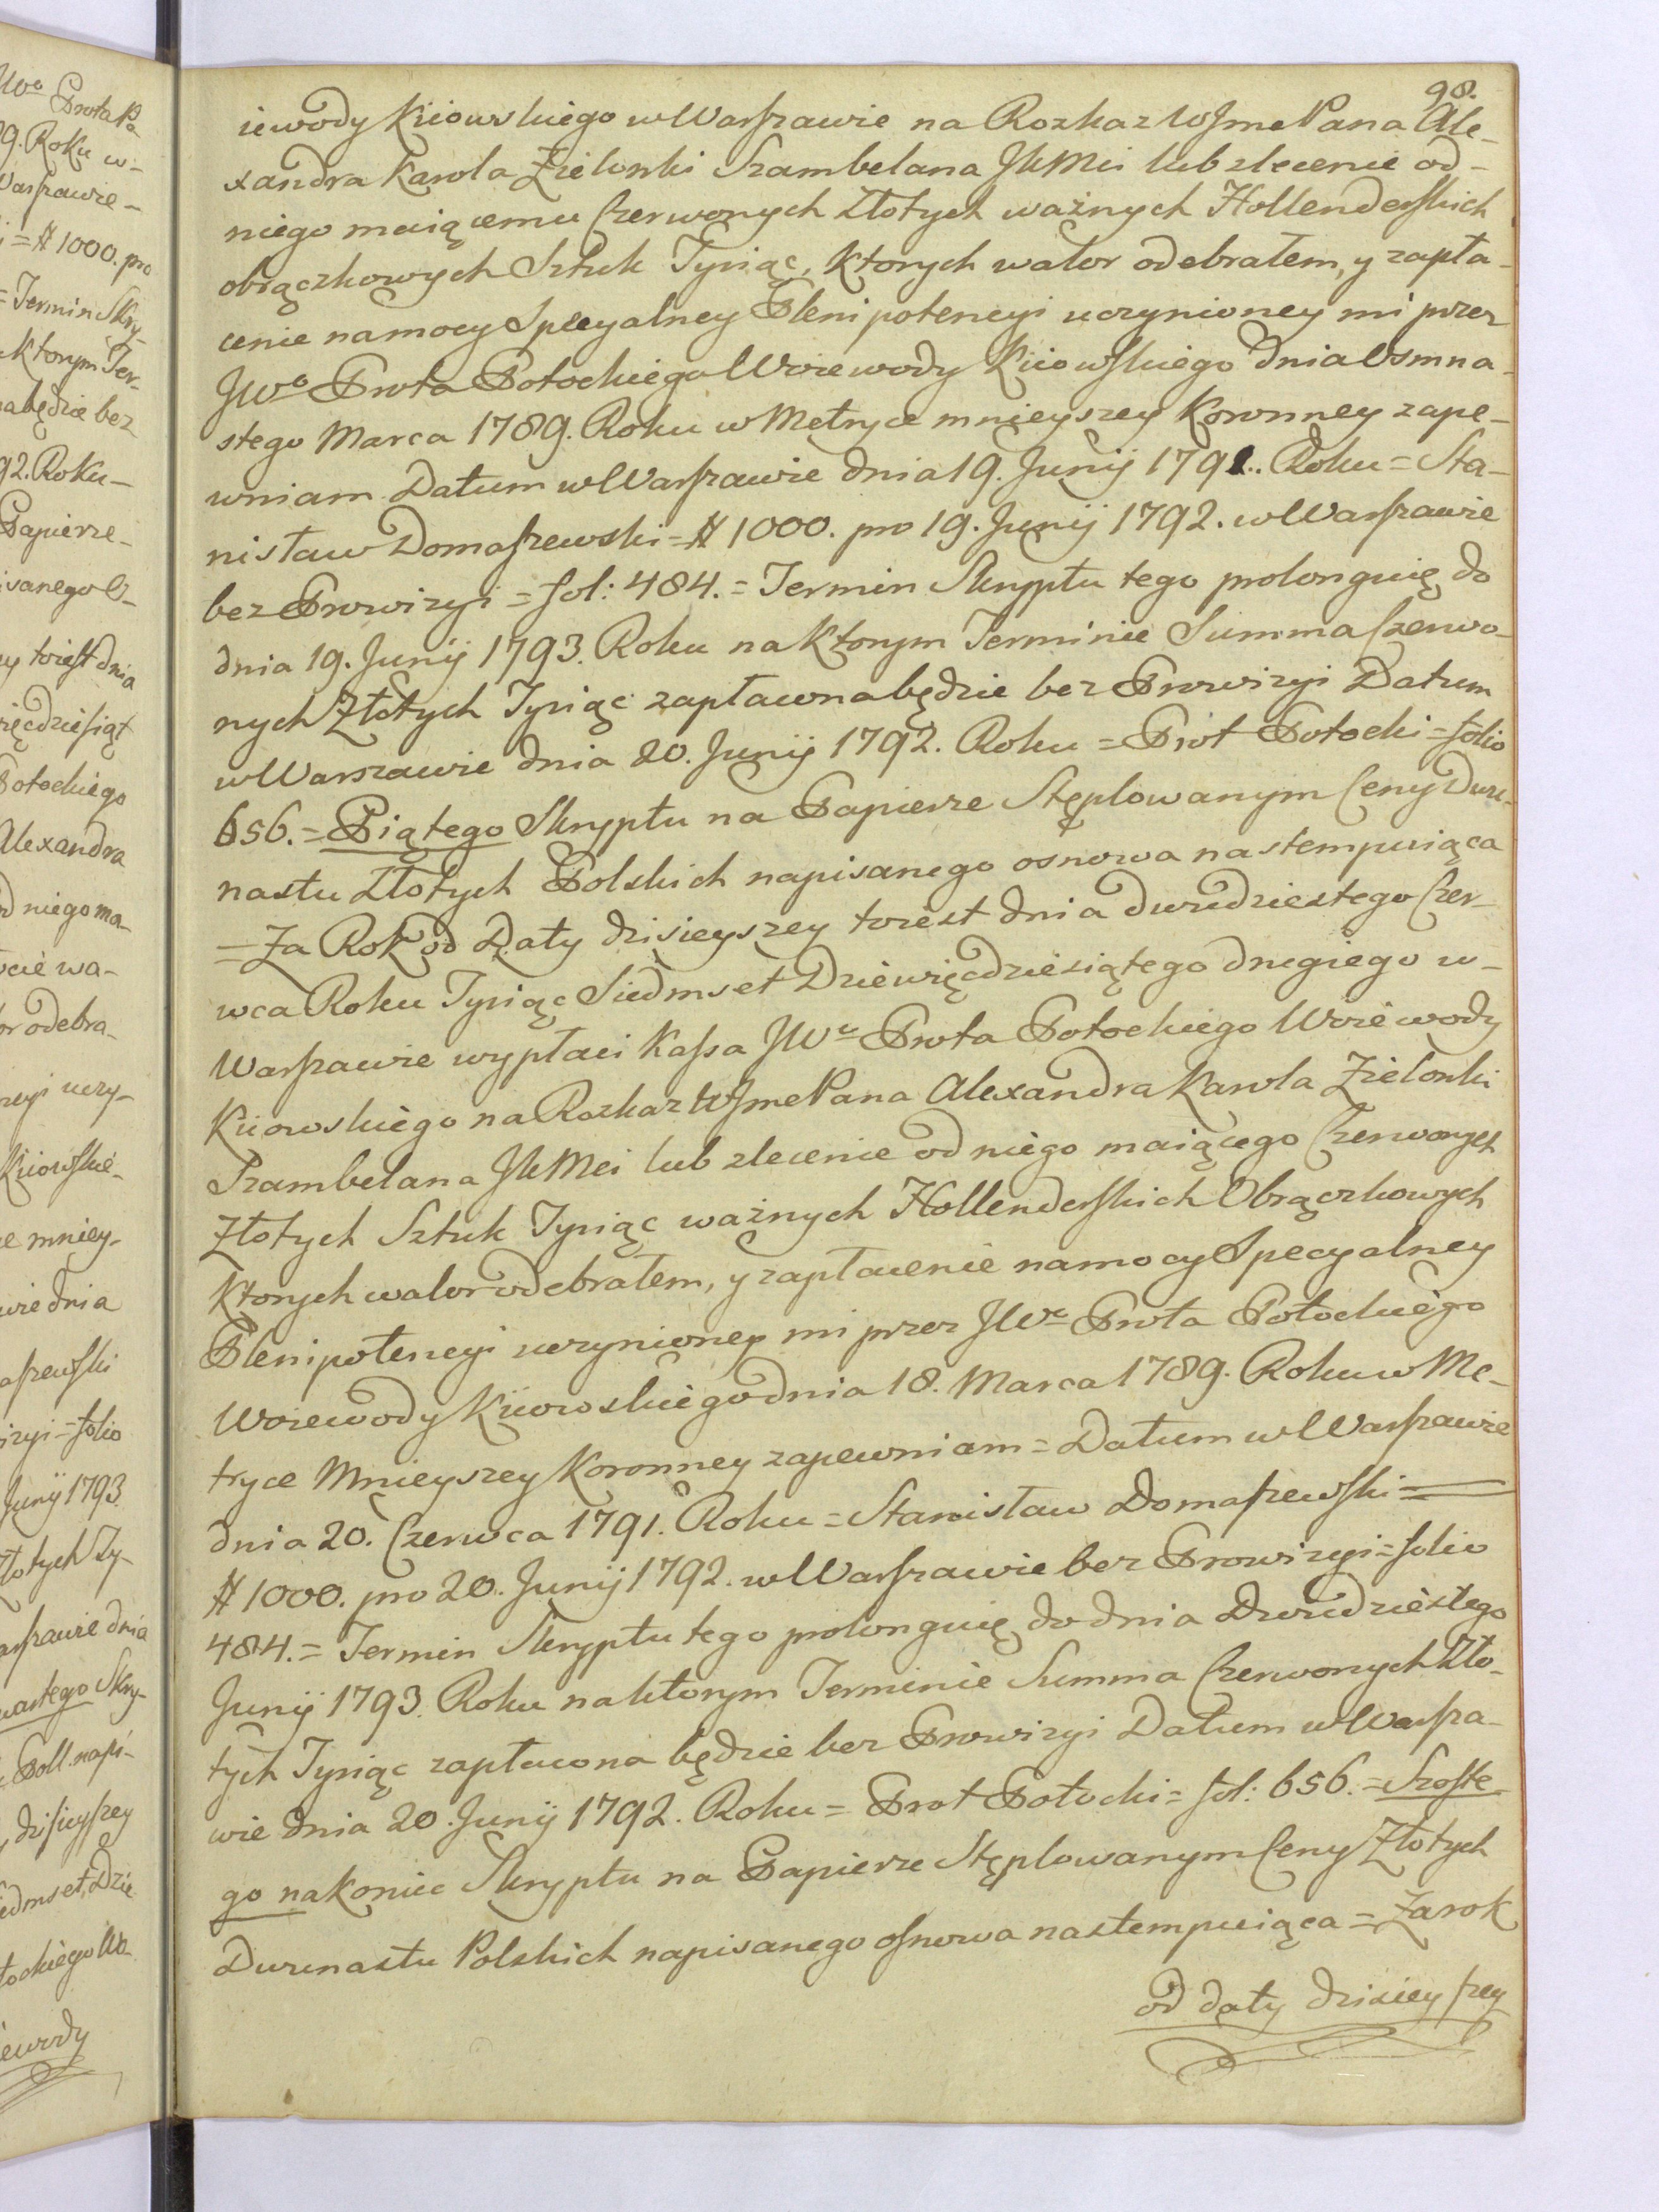 98.
iewody Kiiowskiego w Warszawie na Rozkaz WJmePana Ale-
xandra Karola Zielonki Szambelana JKMci lub zlecenie od-
niego maiącemu Czerwonych Złotych ważnych Hollenderskich
obrączkowych Sztuk Tysiąc, Ktorych walor odebrałem, y zapła-
cenie na mocy Specyalney Plenipotencyi uczynioney mi przez
JWo Prota Potockiego Woiewody Kiiowskiego dnia Osmna-
stego Marca 1789. Roku w Metryce mnieyszey Koronney zape-
wniam Datum w Warszawie dnia 19. Junij 1791. Roku = Sta-
nisław Domaszewski = # 1000. pro 19. Junij 1792. w Warszawie
bez Prowizyi = fol: 484. = Termin Skryptu tego prolonguię do
dnia 19. Junij 1793. Roku na Ktorym Terminie Summa Czerwo-
nych Złotych Tysiąc zapłacona będzie bez Prowizyi Datum
w Warszawie dnia 20. Junij 1792. Roku = Prot Potocki = folio
656. = Piątego Skryptu na Papierze Stęplowanym Ceny Dwu-
nastu Złotych Polskich napisanego osnowa nastempuiąca
= Za Rok od Daty dzisieyszey toiest dnia dwudziestego Czer-
wca Roku Tysiąc Siedmset Dziewięcdziesiątego drugiego w-
Warszawie wypłaci Kassa JWo Prota Potockiego Woiewody
Kiiowskiego na Rozkaz WJmePana Alexandra Karola Zielonki
Szambelana JKMci lub zlecenie od niego maiącego Czerwonych
Złotych Sztuk Tysiąc ważnych Hollenderskich Obrączkowych
Ktorych walor odebrałem, y zapłacenie na mocy Specyalney
Plenipotencyi uczynioney mi przez JWo Prota Potockiego
Woiewody Kiiowskiego dnia 18. Marca 1789. Roku w Me-
tryce Mnieyszey Koronney zapewniam = Datum w Warszawie
dnia 20. Czerwca 1791. Roku = Stanisław Domaszewski =
# 1000. pro 20. Junij 1792. w Warszawie bez Prowizyi = folio
484. = Termin Skryptu tego prolonguię do dnia Dwudziestego
Junij 1793. Roku na ktorym Terminie Summa Czerwonych Zło-
tych Tysiąc zapłacona będzie bez Prowizyi Datum w Warsza-
wie dnia 20. Junij 1792. Roku = Prot Potocki = fol: 656. = Szoste-
go nakoniec Skryptu na Papierze Stęplowanym Ceny Złotych
Dwunastu Polskich napisanego osnowa nastempuiąca = Za rok
od daty dzisieyszey